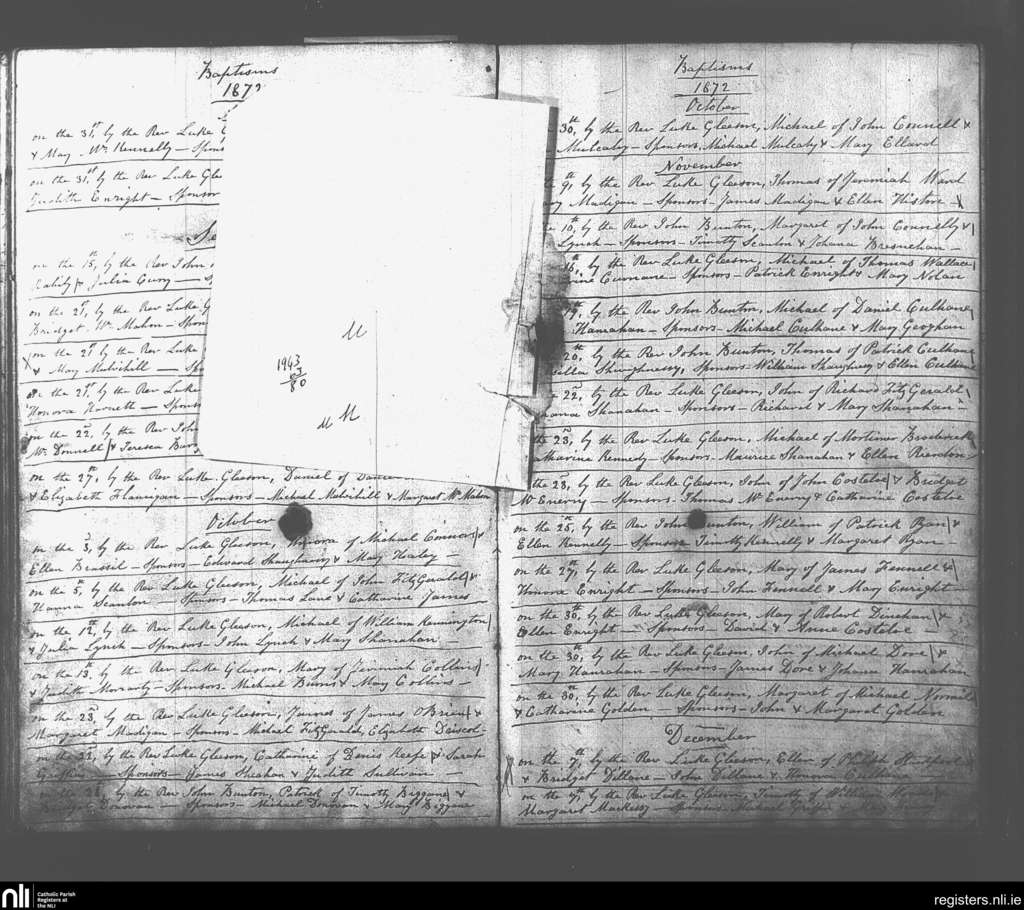 Baptisms
1872
on the 31st, by the Rev Luke
& Mary Mc Kennelly — Spons
on the 31st, by the Rev Luke Glee
Judith Enright — Sponsor
Se
on the 15, by the Rev John
Julia Curry — S
on the 21st, by the Rev Luke G
Bridget Mc Mahon — Spon
on the 21st by the Rev Luke
& Mary Mulvihill — Sp
on the 21st, by the Rev Luke
Honora Harnett — Spons
on the 22nd, by the Rev John
Mc Donnell & Teresa
on the 27th, by the Rev Luke Gleeson, Daniel of
& Elizabeth Flanigan — Sponsors — Michael Mulvihill & Margaret Mc Mahon
October
on the 3rd, by the Rev Luke Gleeson, Honora of Michael Connors &
Ellen Brassil — Sponsors — Edward Shaughnessy & Mary Healy —
on the 5th, by the Rev Luke Gleeson, Michael of John FitzGerald &
Hanna Scanlon — Sponsors — Thomas Lane & Catharine James
on the 12th, by the Rev Luke Gleeson, Michael of William Rennington
& Julia Lynch — Sponsors — John Lynch & Mary Shanahan
on the 13th, by the Rev Luke Gleeson, Mary of Jeremiah Collins
& Judith Moriarty — Sponsors — Michael Burns & Mary Collins —
on the 23rd, by the Rev Luke Gleeson, James of James O'Brien &
Margaret Madigan — Sponsors — Michael FitzGerald & Elizabeth Driscol
on the 22nd, by the Rev Luke Gleeson, Catharine of Denis Keefe & Sarah
Griffin — Sponsors — James Sheahan & Judith Sullivan —
on the by the Rev John Bunton, Patrick of Timothy Biggane &
Donovan — Sponsors — Michael Donovan & Mary Biggane
1943
63
80
M
M
M
Baptisms
1872
October
30th, by the Rev Luke Gleeson, Michael of John Connell &
Mulcahy — Sponsors, Michael Mulcahy & Mary Ellard
November
9th, by the Rev Luke Gleeson, Thomas of Jeremiah Ward
Madigan — Sponsors — James Madigan & Ellen
10th, by the Rev John Bunton, Margaret of John Connelly &
Lynch — Sponsors — Timothy Scanlon & Johana Bresnehan —
16th, by the Rev Luke Gleeson, Michael of Thomas Wallace
Cunnane — Sponsors — Patrick Enright & Mary Nolan
19th, by the Rev John Bunton, Michael of Daniel Culhane
Hanrahan — Sponsors — Michael Culhane & Mary Geoghan
20th, by the Rev John Bunton, Thomas of Patrick Culhane
Shaughnessy, Sponsors — William Shaughnessy & Ellen Culhane
22nd, by the Rev Luke Gleeson, John of Richard FitzGerald
Shanahan — Sponsors — Richard & Mary Shanahan —
the 23rd, by the Rev Luke Gleeson, Michael of Mortimer Broderick
Catharine Kennedy — Sponsors — Maurice Shanahan & Ellen Riordon —
the 23rd, by the Rev Luke Gleeson, John of John Costeloe & Bridget
Mc Enerry — Sponsors — Thomas Mc Enerry & Catharine Costeloe
on the 25th, by the Rev John Bunton, William of Patrick Ryan &
Ellen Kennelly — Sponsors — Timothy Kennelly & Margaret Ryan
on the 27th, by the Rev Luke Gleeson, Mary of James Fennell &
Honora Enright — Sponsors — John Fennell & Mary Enright
on the 30th, by the Rev Luke Gleeson, Mary of Robert Dinehan &
Ellen Enright — Sponsors — David & Anne Costeloe —
on the 30th, by the Rev Luke Gleeson, John of Michael Dore &
Mary Hanrahan — Sponsors — James Dore & Johanna Hanrahan
on the 30th, by the Rev Luke Gleeson, Margaret of Michael
& Catharine Golden — Sponsors — John & Margaret Golden
December
on the 7th, by the Rev Luke Gleeson, Ellen of Philip
& Bridget Dillane — John Dillane & Honora Culhane
on the 7th, by the Rev Luke Gleeson, Timothy of William
Margaret Markessy — Sponsors — Michael
nli
Catholic Parish
Registers at
the NLI
registers.nli.ie